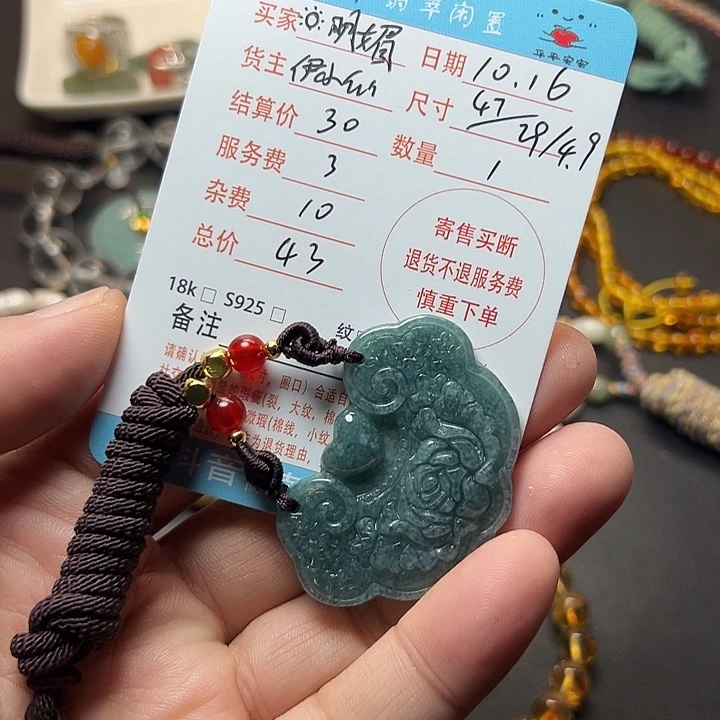 翡翠闲置
平平安安
买家 明媚
日期 10.16
货主
尺寸 47/29/4.9
结算价 30
服务费 3
数量 1
杂费 10
总价 43
寄售买断
退货不退服务费
慎重下单
18k□ S925□
备注
纹
请确认
圈口）合适自
(裂，大纹，棉
微瑕(棉线，小纹
为退货理由，
抖音